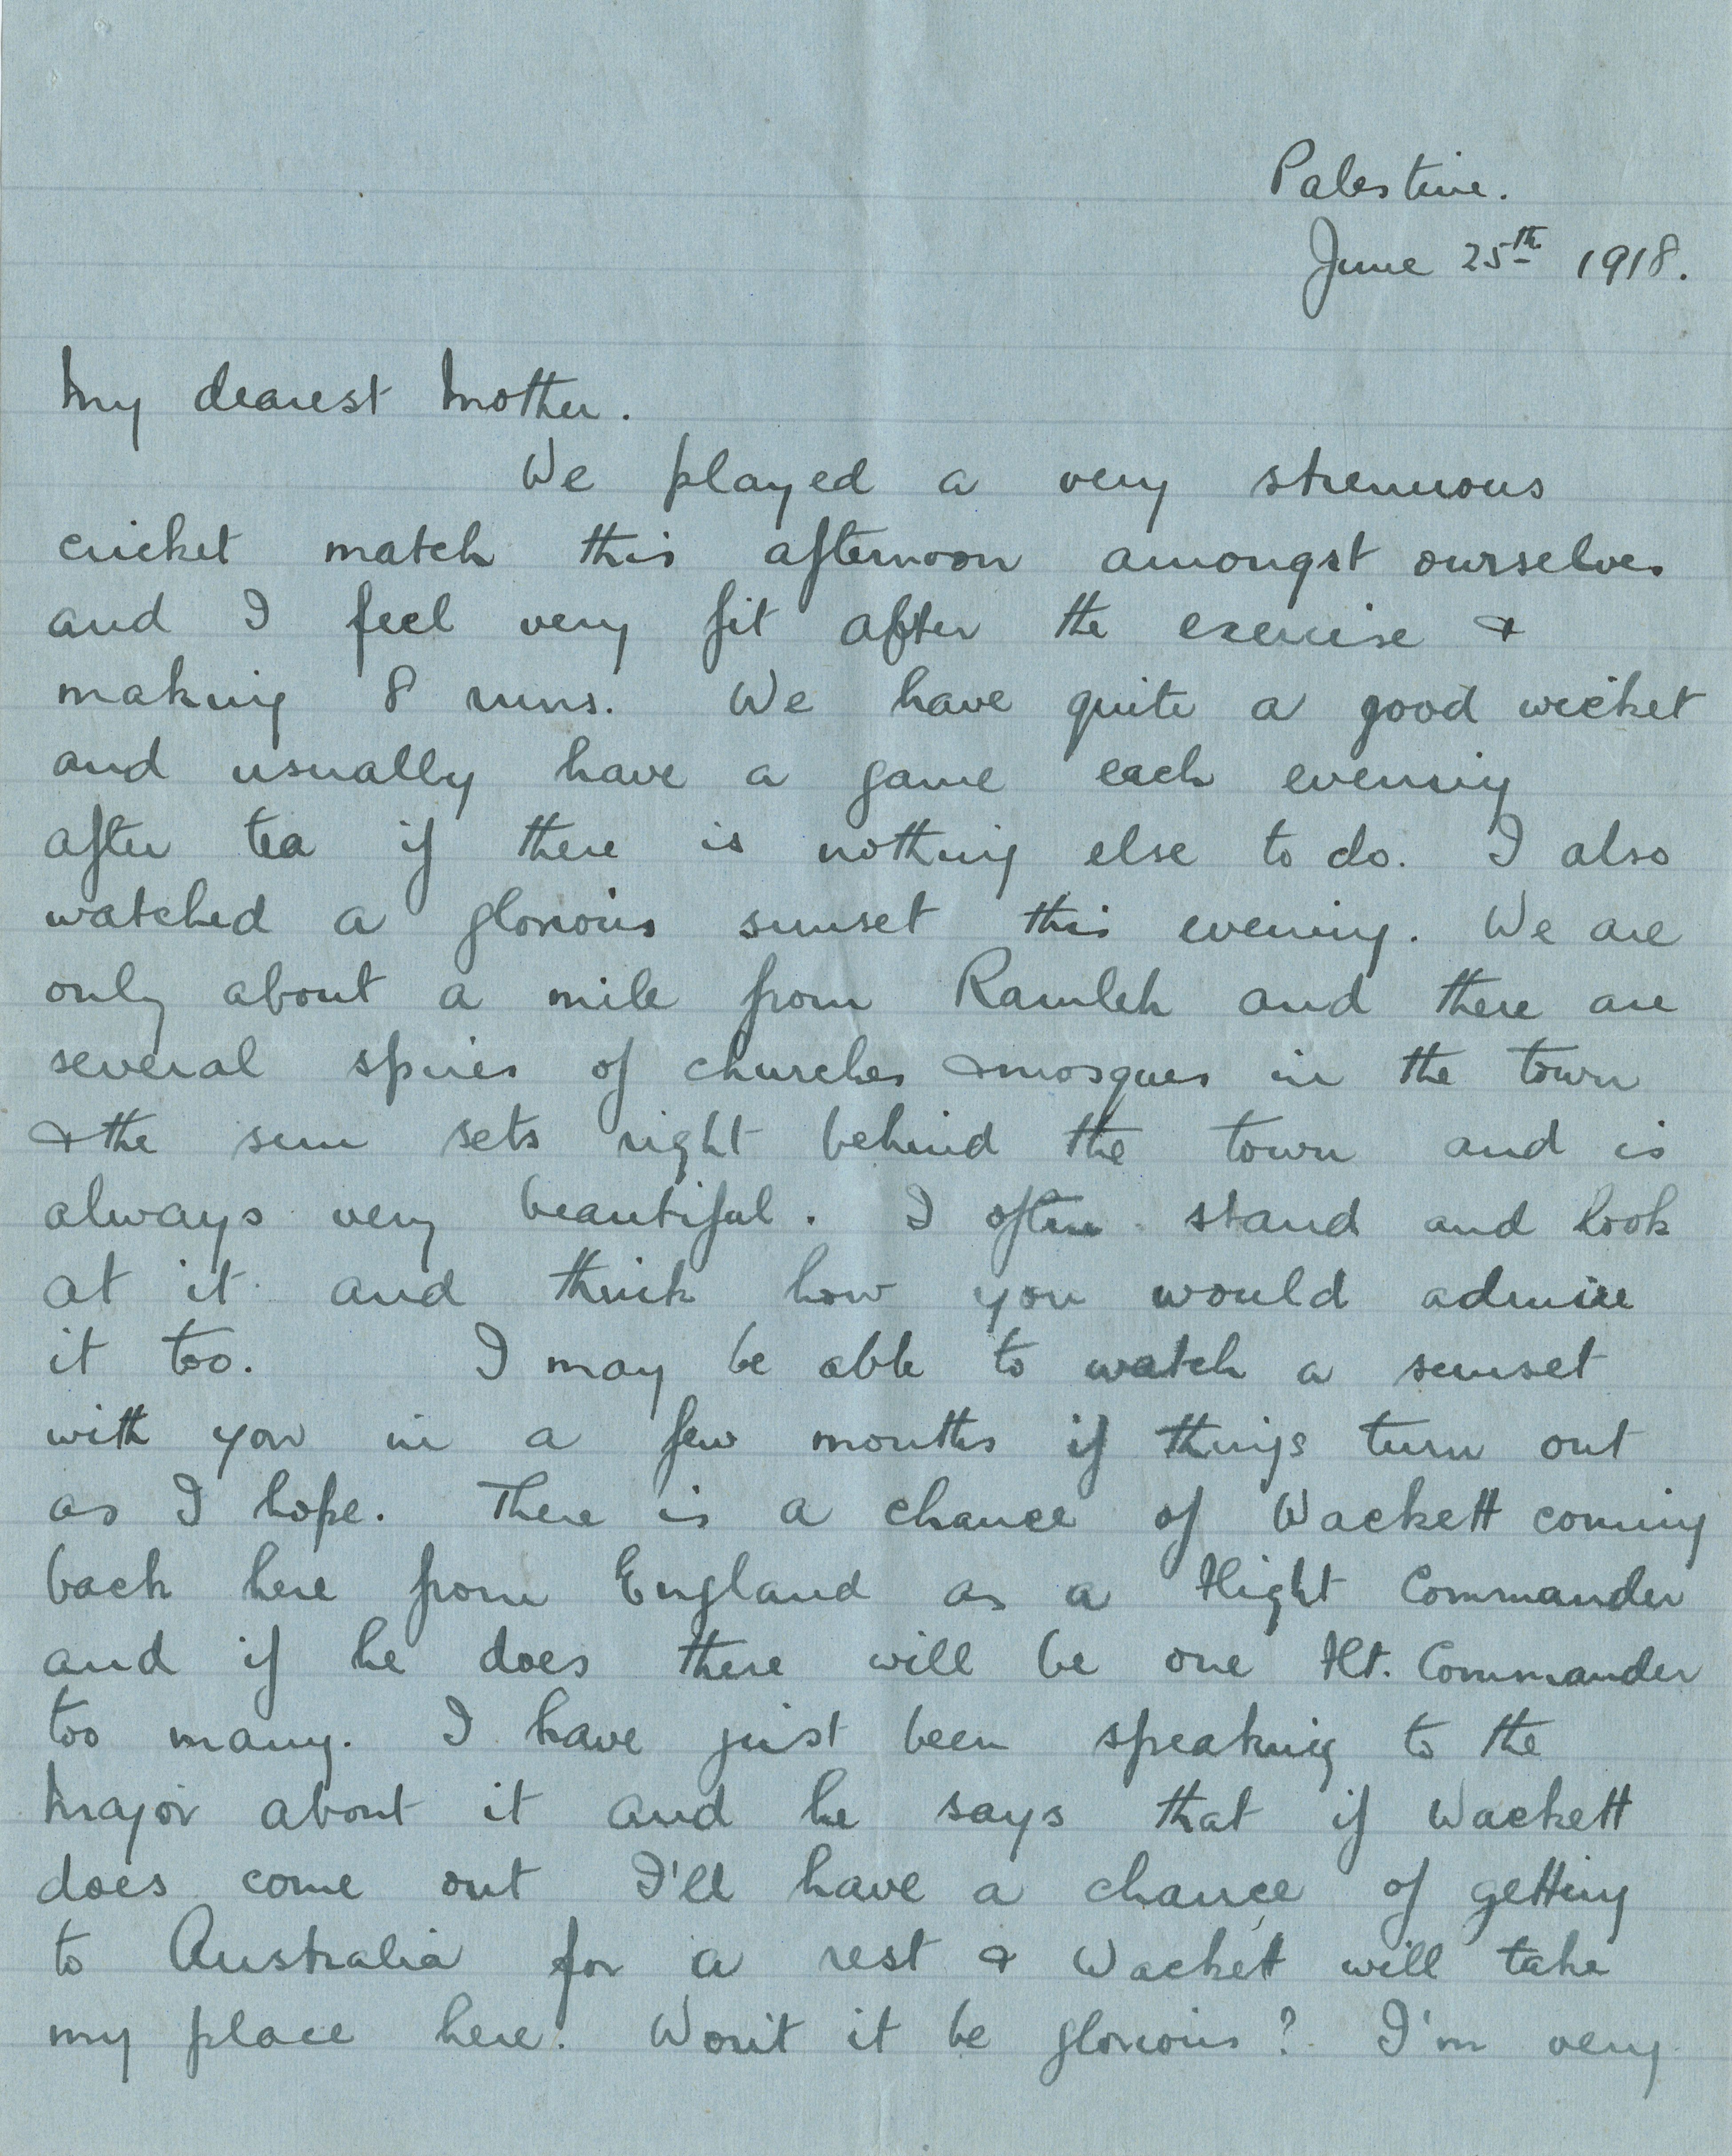 Palestine.
June 25th 1918.
My dearest Mother.
We played a very strenuous
cricket match this afternoon amongst ourselves
and I feel very fit after the exercise &
making 8 runs. We have quite a good wicket
and usually have a game each evening
after tea if there is nothing else to do. I also
watched a glorious sunset this evening. We are
only about a mile from Ramleh and there are
several spires of churches & mosques in the town
& the sun sets right behind the town and is
always very beautiful. I often stand and look
at it and think how you would admire
it too. I may be able to watch a sunset
with you in a few months if things turn out
as I hope. There is a chance of Wackett coming
back here from England as a Flight Commander
and if he does there will be one Flt. Commander
too many. I have just been speaking to the
Major about it and he says that if Wackett
does come out I'll have a chance of getting
to Australia for a rest & Wackett will take
my place here. Won't it be glorious? I'm very